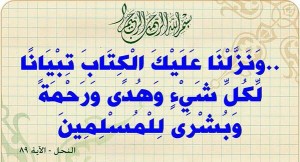 بسم الله الرحمن الرحيم
..وَنَزَّلْنَا عَلَيْكَ الْكِتَابَ تِبْيَانًا
لِّكُلِّ شَيْءٍ وَهُدًى وَرَحْمَةً
وَبُشْرَى لِلْمُسْلِمِينَ
النحل - الآية ٨٩